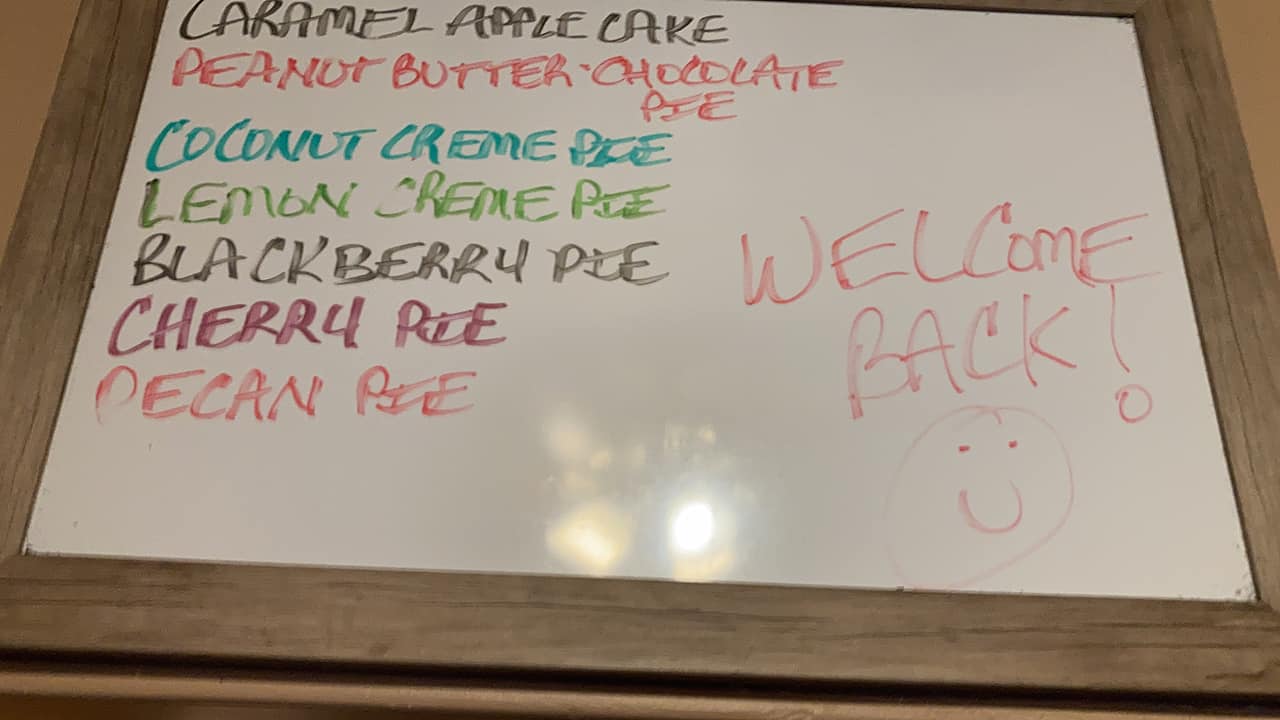 CARAMEL APPLE CAKE
PEANUT BUTTER-CHOCOLATE
PIE
COCONUT CREME PIE
LEMON CREME PIE
BLACKBERRY PIE
CHERRY PIE
PECAN PIE
WELCOME
BACK!